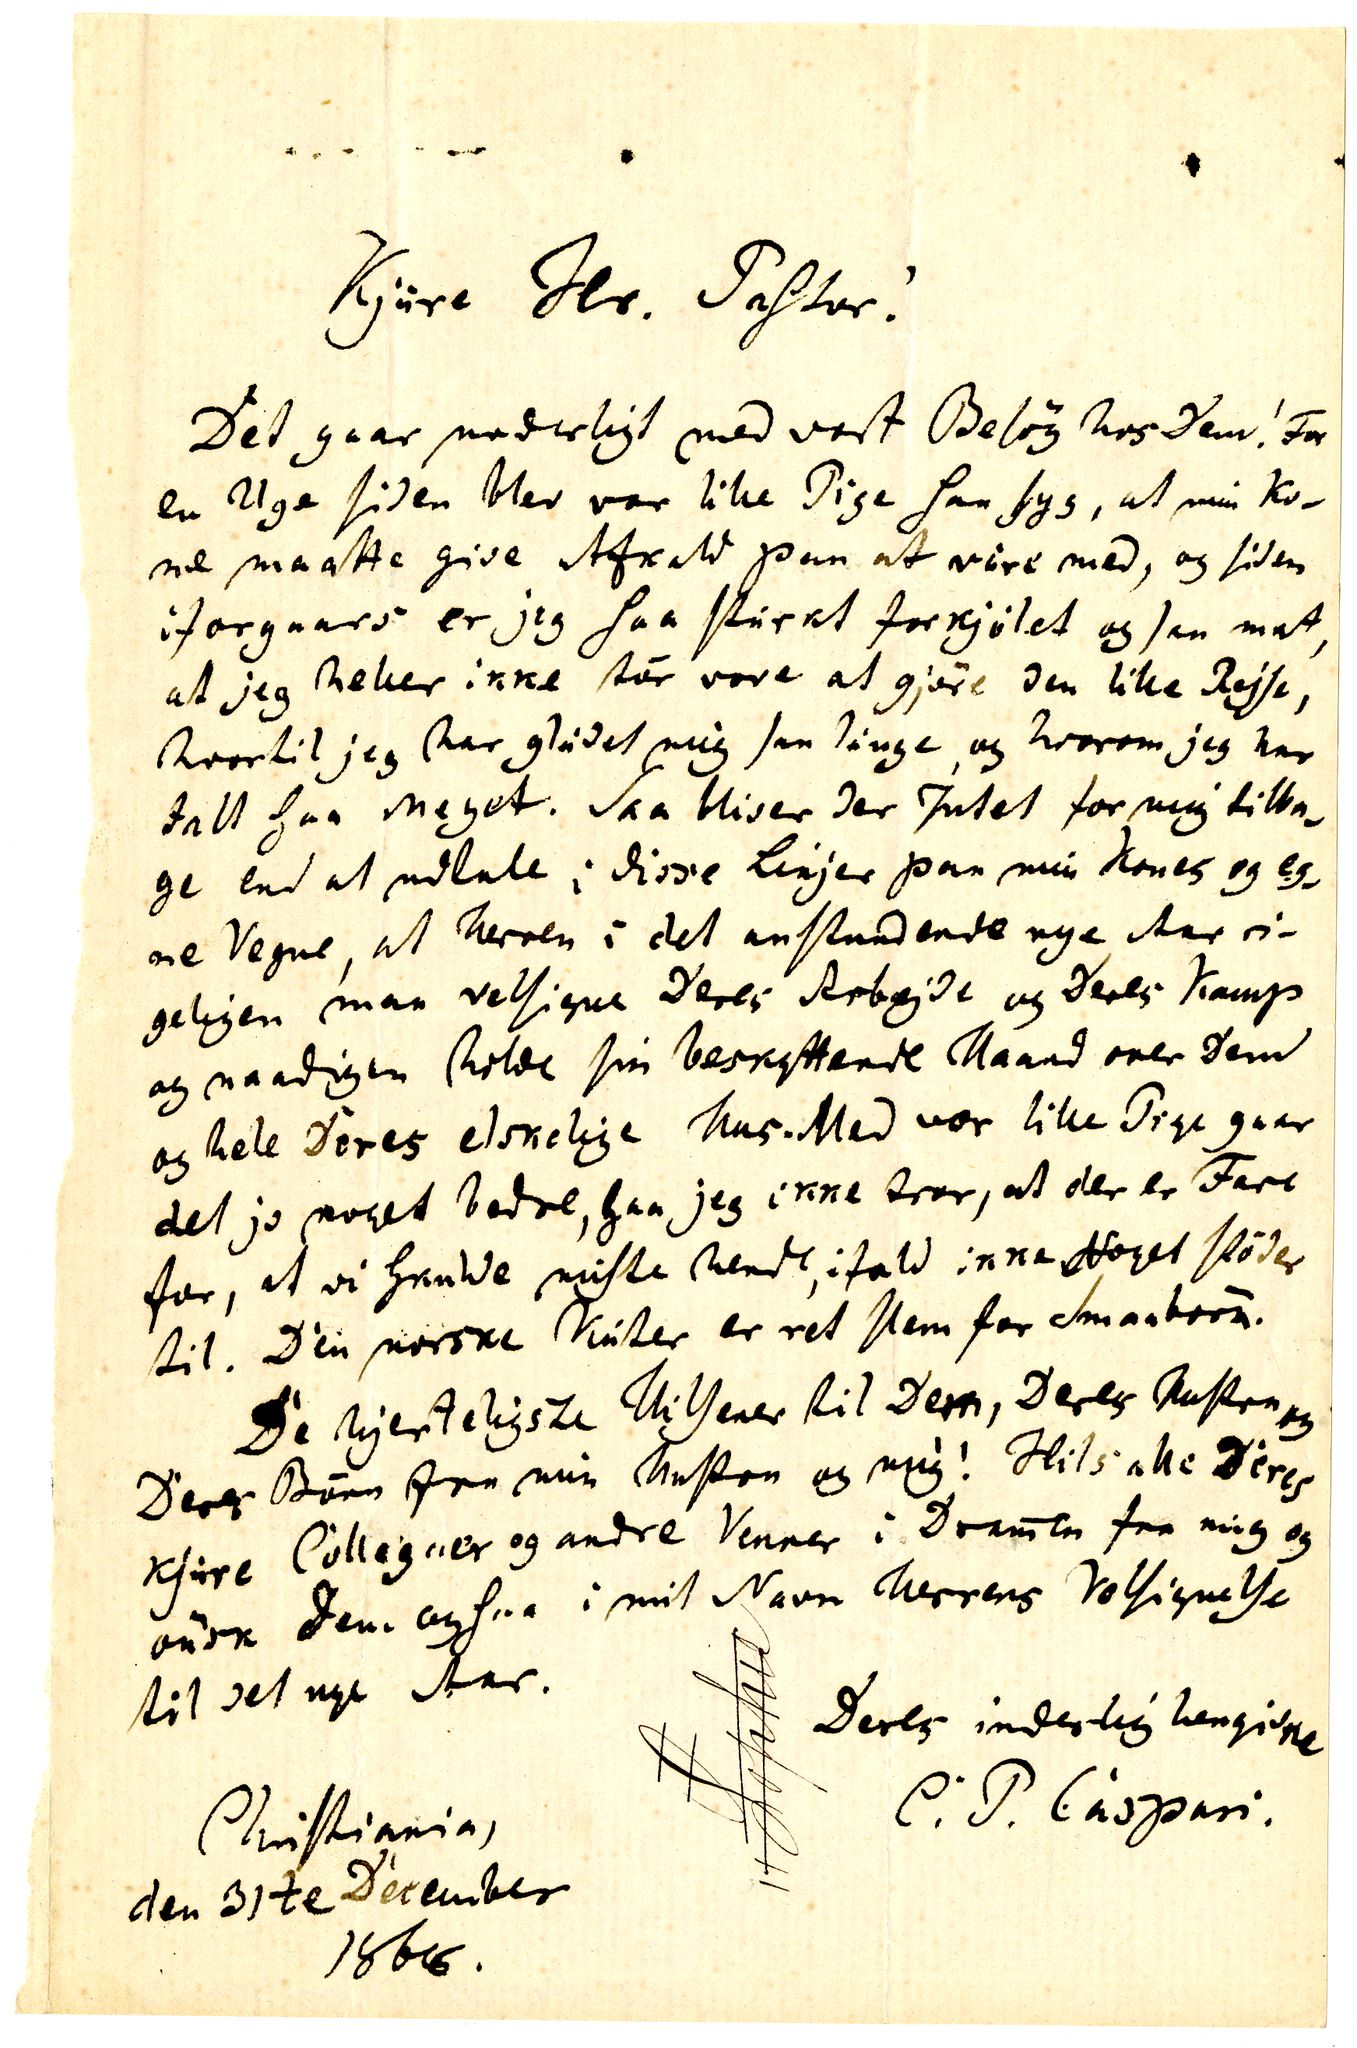 Kjäre Hr. Pastor!
Det gaar underligt med vort Besög hos Dem! For
en Uge siden blev vor lille Pige saa syg, at min Ko-
ne maatte give Afkald paa at väre med, og siden
iforgaars er jeg saa stärkt forkjölet og saa mat,
at jeg heller ikke tör vove at gjöre den lille Rejse,
hvortil jeg har glädet mig saa länge, og hvorom jeg har
talt saa meget. Saa bliver der Intet for mig tilba-
ge end at udtale i disse Linjer paa min Kones og eg-
ne Vegne, at Herren i det anstundende nye Aar ri-
geligen maa velsigne Deres Arbejde og Deres Kamp
og naadigen holde sin beskyttende Haand over Dem
og hele Deres elskelige Hus. Med vor lille Pige gaar
det jo noget bedre, saa jeg ikke tror, at der er Fare
for, at vi skulde miste hende, ifald ikke Noget stöder
til. Den norske Vinter er ret slem for Smaabörn.
De hjerteligste Hilsener til Dem, Deres Hustru og
Deres Börn fra min Hustru og mig! Hils alle Deres
kjäre Collegaer og andre Venner i Dram̄en fra mig og
önsk Dem ogsaa i mit Navn Herrens Velsignelse
til det nye Aar.
Deres inderlig hengivne
C. P. Caspari.
Christiania,
den 31te December
1866.